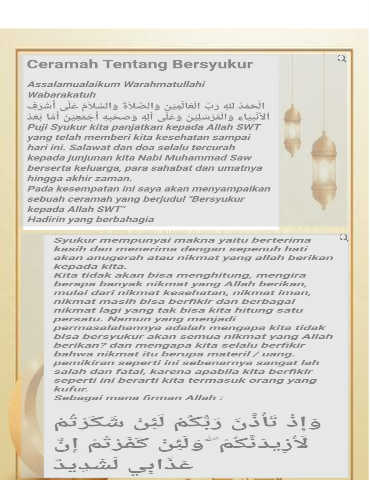 Ceramah Tentang Bersyukur
Assalamualaikum Warahmatullahi
Wabarakatuh
الْحَمْدُ لِلّهِ رَبِّ الْعَالَمِيْنَ وَالصَّلَاةُ وَالسَّلَامُ عَلَى أَشْرَفِ
الْأَنْبِيَاءِ وَالْمُرْسَلِيْنَ وَعَلَى آلِهِ وَصَحْبِهِ أَجْمَعِيْنَ أَمَّا بَعْدُ
Puji Syukur kita panjatkan kepada Allah SWT
yang telah memberi kita kesehatan sampai
hari ini. Salawat dan doa selalu tercurah
kepada junjunan kita Nabi Muhammad Saw
berserta keluarga, para sahabat dan umatnya
hingga akhir zaman.
Pada kesempatan ini saya akan menyampaikan
sebuah ceramah yang berjudul "Bersyukur
kepada Allah SWT"
Hadirin yang berbahagia
Syukur mempunyai makna yaitu berterima
kasih dan menerima dengan sepenuh hati
akan anugerah atau nikmat yang allah berikan
kepada kita.
Kita tidak akan bisa menghitung, mengira
berapa banyak nikmat yang Allah berikan,
mulai dari nikmat kesehatan, nikmat iman,
nikmat masih bisa berfikir dan berbagai
nikmat lagi yang tak bisa kita hitung satu
persatu. Namun yang menjadi
permasalahannya adalah mengapa kita tidak
bisa bersyukur akan semua nikmat yang Allah
berikan? dan mengapa kita selalu berfikir
bahwa nikmat itu berupa materil / uang.
pemikiran seperti ini sebenarnya sangat lah
salah dan fatal, karena apabila kita berfikir
seperti ini berarti kita termasuk orang yang
kufur.
Sebagai mana firman Allah :
وَإِذْ تَأَذَّنَ رَبُّكُمْ لَئِنْ شَكَرْتُمْ
لَأَزِيدَنَّكُمْ ۖ وَلَئِنْ كَفَرْتُمْ إِنَّ
عَذَابِي لَشَدِيدٌ